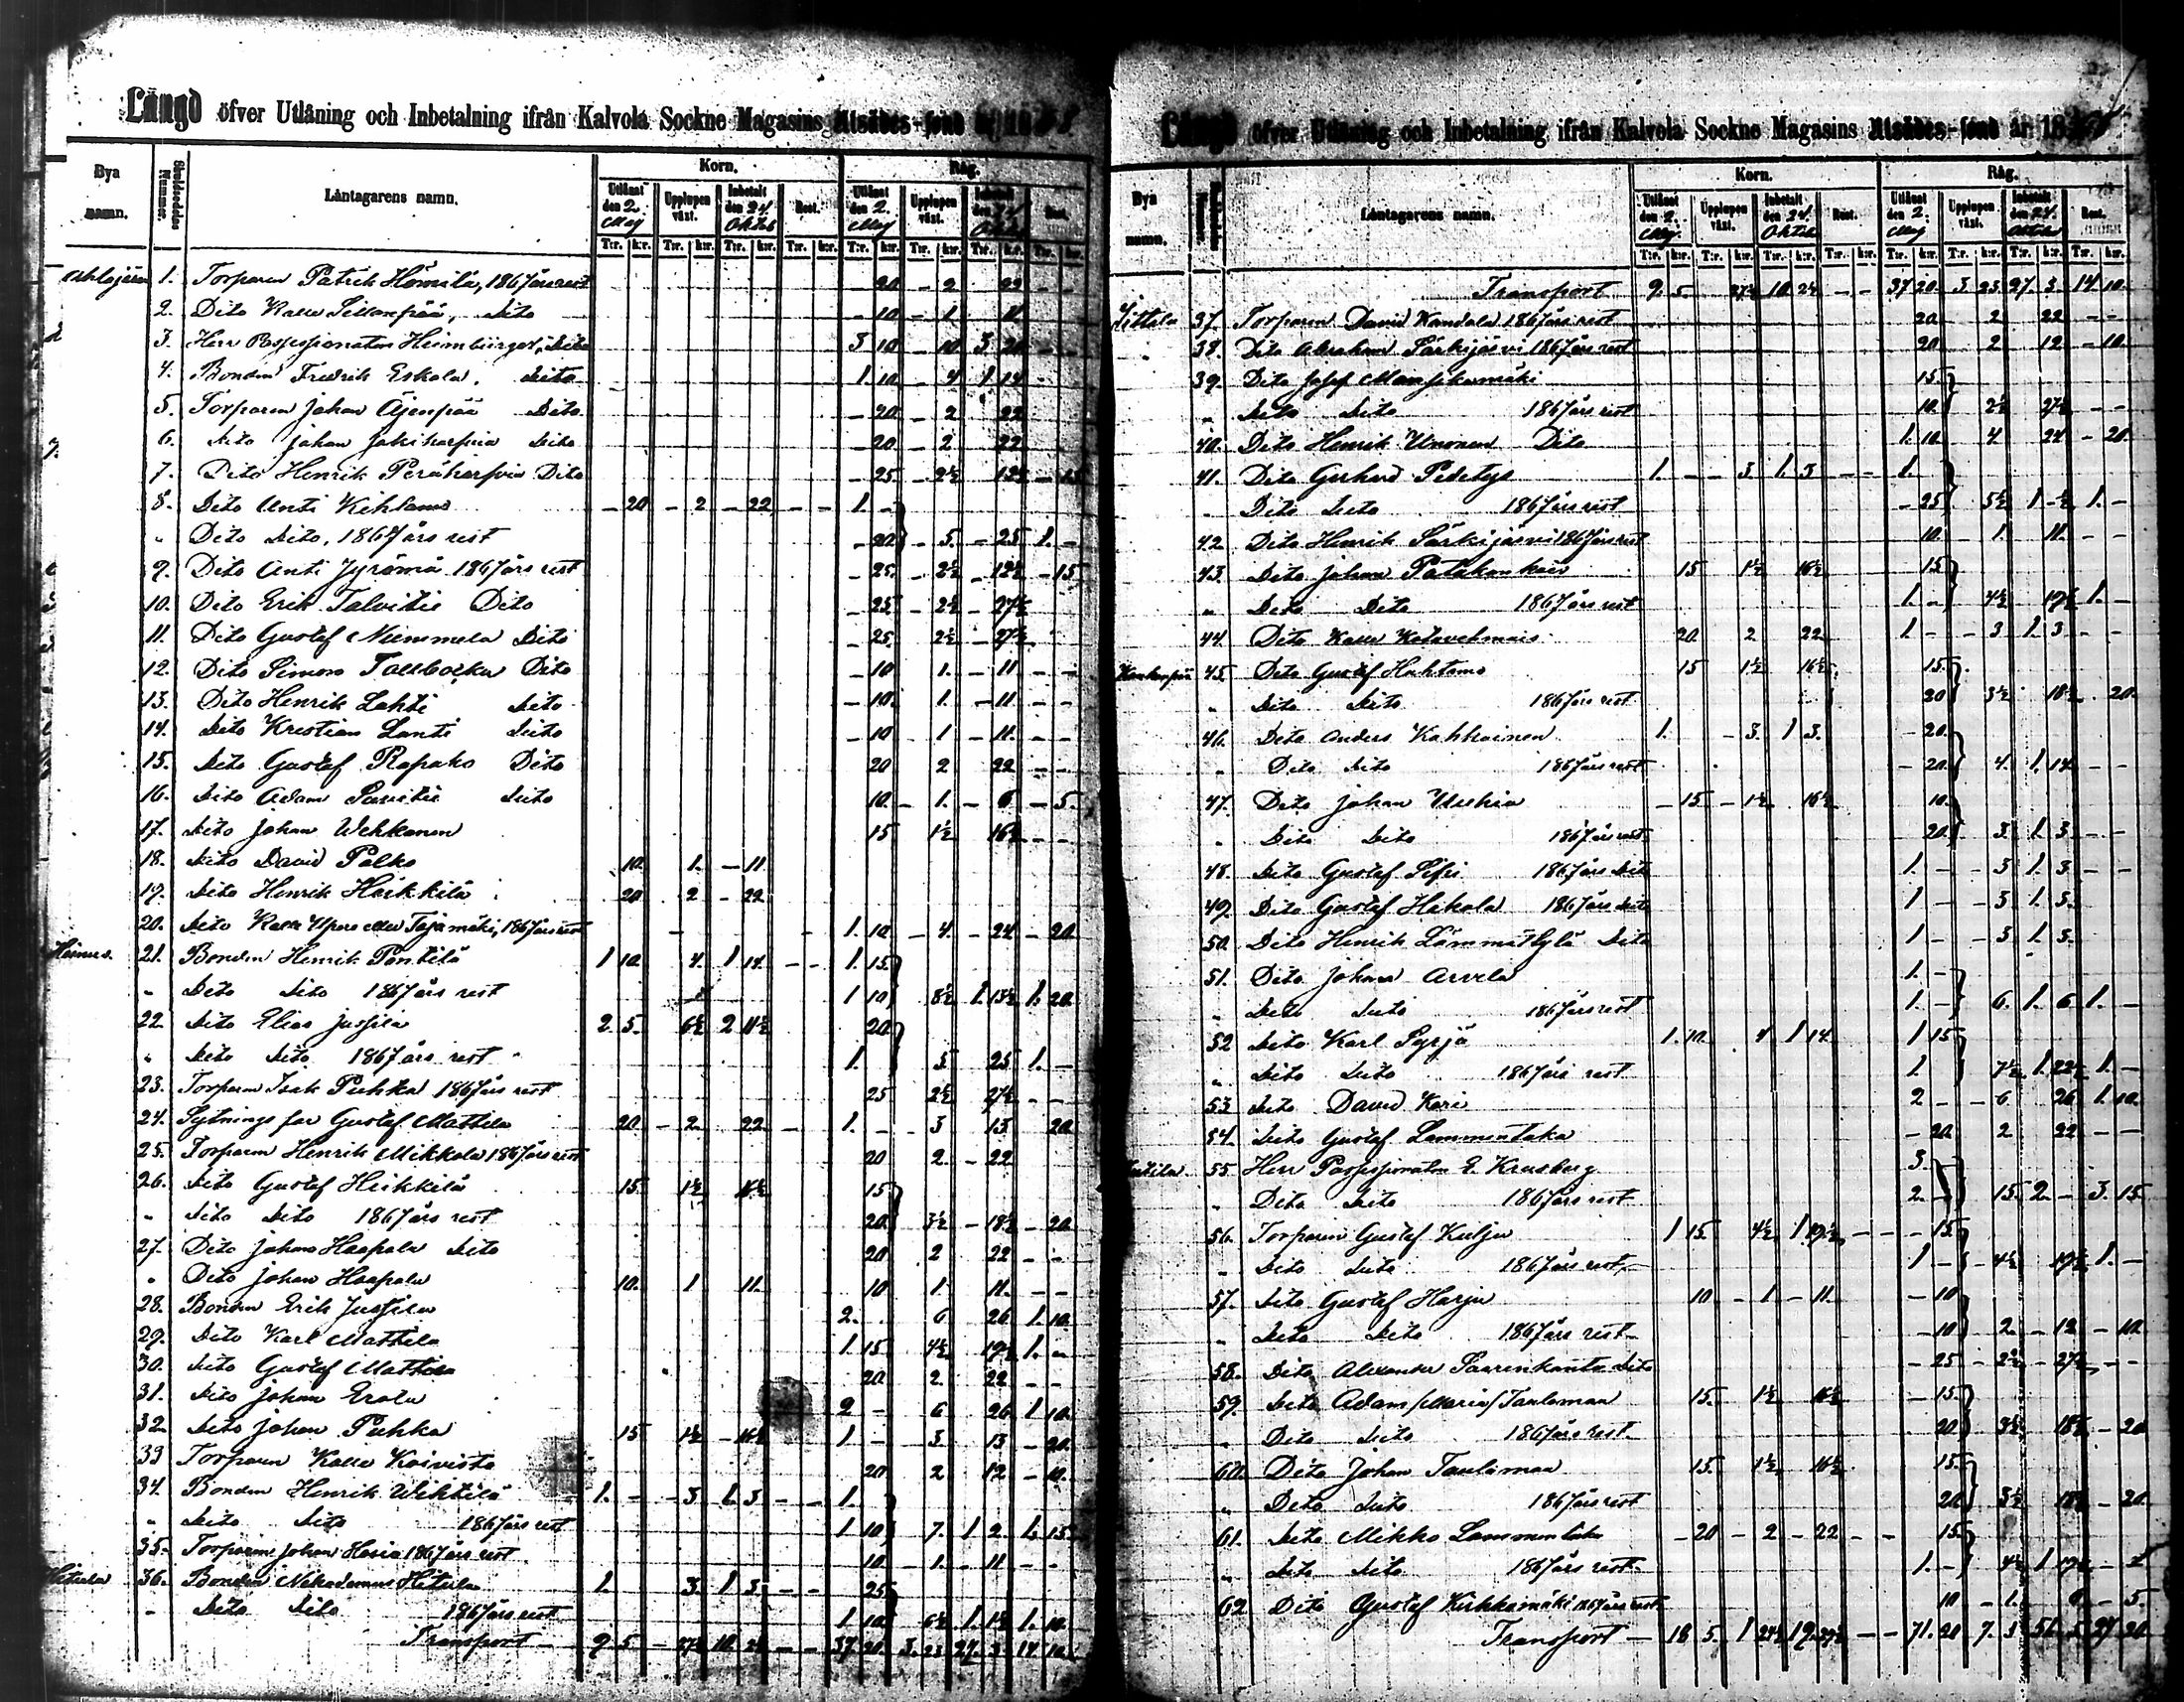 Längd öfver Utlåning och Inbetalning ifrån Kalvola Sockne Magasins Utsädes-fond år 1868
Bya namn. Skuldsedelns Nummer. Låntagarens namn. Korn. Råg.
Utlånt den 2 Maj Upplupen växt. Inbetalt den 24 Oktob Rest. Utlånt den 2. Maj Upplupen växt. Inbetalt den 24 Oktob Rest.
T:r. k:r. T:r. k:r. T:r. k:r. T:r. k:r. T:r. k:r. T:r. k:r. T:r. k:r. T:r. k:r.
1. Torparen Patrik Hömilä, 1867 års rest - 20 - 2 22 - -
2. Dito Kalle Sillanpää, Dito - 10 - 1 11
3. Herr Possessionaten Heimbürger, Dito 3 10 - 10 3 20 - -
4. Bonden Fredrik Eskola, Dito 1 10 - 4 1 14
5. Torparen Johan Äjenpää Dito - 20 - 2 22
6. Dito Johan Jokiharju Dito - 20 - 2 22
7. Dito Henrik Peräharju Dito - 25 - 2½ 12½ - 15
8. Dito Anti Kihlamo - 20 - 2 - 22 - - 1 -
" Dito Dito, 1867 års rest - 20 - 5 - 25 1. -
9. Dito Anti Jyrämä 1867 års rest - 25 - 2½ - 12½ - 15
10. Dito Erik Talvitie Dito - 25 - 2½ - 27½
11. Dito Gustaf Niemmela Dito - 25 - 2½ - 27½
12. Dito Simon Tallbacka Dito - 10 1. - 11 - -
13. Dito Henrik Lahti Dito - 10 1. - 11 - -
14. Dito Kristian Lanti Dito - 10 1 - 11. - -
15. Dito Gustaf Rapako Dito 20 2 22 - -
16. Dito Adam Savitie Dito 10 - 1. - 6 - 5.
17. Dito Johan Wehkanen 15 1½ 16½ - -
18. Dito David Palko 10. 1. - 11
19. Dito Henrik Heikkilä 20 2 - 22
20. Dito Kalle Tajamäki, 1867 års rest 1. 10 - 4. - 24 - 20
Heinus. 21. Bonden Henrik Pentilä 1 10. 4. 1 14. - - 1. 15
" Dito Dito 1867 års rest 1 10 8½ 1. 13½ 1. 20
22. Dito Elias Jussila 2. 5. 6½ 2 11½ 20
" Dito Dito 1867 års rest 1. 5 25 1. -
23. Torparen Isak Puhka 1867 års rest 25 2½ 27½ - -
24. Sytnings far Gustaf Mattila 20 - 2. 22 - 1. - 3 13 20
25. Torparen Henrik Mikkola 1867 års rest 20 2 - 22
26. Dito Gustaf Heikkilä 15 1½ 16½ 15
" Dito Dito 1867 års rest 20 3½ - 18½ - 20
27. Dito Johan Haapala Dito 20 2 22 - -
" Dito Johan Haapala 10. 1 11. 10 1 11. - -
28. Bonden Erik Jussila 2. 6 26 1. 10.
29. Dito Karl Mattila 1. 15 4½ 19½ 1. -
30. Dito Gustaf Mattila 20 2. 22 - -
31. Dito Johan Erola 2 - 6 26 1 10.
32. Dito Johan Puhka 15 1½ - 16½ 1 - 3. 13 - 20.
33 Torparen Kalle Koivisto 20 2 12 - 10.
34. Bonden Henrik Wihtilä 1. - - 3 1. 3 - - 1.
" Dito Dito 1867 års rest 1 10 7. 1 2 1. 15.
35. Torparen Johan Haria 1867 års rest 10 - 1. - 11 - -
Hietula 36. Bonden Nikodemus Hietula 1. 3. 1 3 - - 25
" Dito Dito 1867 års rest 1 10. 6½ 1. 1½ 1. 10.
Transport 9 5 - 27½ 10 2½ - - 37 20. 3. 23 27. 3. 14 10.
Längd öfver Utlåning och Inbetalning ifrån Kalvola Sockne Magasins Utsädes-fond år 1868
Bya namn. Låntagarens namn. Korn. Råg.
Utlånt den 2. Maj. Upplupen växt. Inbetalt den 24. Oktob Rest. Utlånt den 2. Maj Upplupen växt. Inbetalt den 24. Oktob Rest.
T:r. k:r. T:r. k:r. T:r. k:r. T:r. k:r. T:r. k:r. T:r. k:r. T:r. k:r. T:r. k:r.
Transport 9. 5. 27½ 10 2½ - - 37 20. 3. 23 27. 3. 14 10.
Iittala 37. Torparen David Kandola 1867 års rest 20 2 22 - -
38. Dito Abraham Särkijärvi 1867 års rest 20 2 12 - 10.
39. Dito Josef Mansikamäki 15.
" Dito Dito 1867 års rest 10. 2½ 27½ - -
40. Dito Henrik Unonen Dito 1. 10. 4 24 - 20.
41. Dito Gerhard Pidetys 1. - - 3 1. 3 - - 1.
" Dito Dito 1867 års rest - 25 5½ 1 - ½ 1. -
42. Dito Henrik Särkijärvi 1867 års rest 10. - 1. 11. - -
43. Dito Johan Patakonkeis 15 1½ 16½ 15
" Dito Dito 1867 års rest 1. - 4½ 19½ 1. -
44. Dito Kalle Katavalmais 20 2 22 1 - - 3 1. 3 - -
Kankanpää 45. Dito Gustaf Huhtamo 15 1½ 16½ 15.
" Dito Dito 1867 års rest 20 3½ 18½ 20.
46. Dito Anders Kahkoinen 1. - 3. 1 3. - 20.
" Dito Dito 1867 års rest - 20. 4. 1. 14 - -
47. Dito Johan Uuhia - 15 - 1½ 16½ 10.
" Dito Dito 1867 års rest 20 3. 1. 3 - -
48. Dito Gustaf Sifri 1867 års Dito 1. - - 3 1. 3. - -
49. Dito Gustaf Hakala 1867 års Dito 1 - - 3 1. 3.
50. Dito Henrik Lämmätlylä Dito 1 - - 3 1. 3.
51. Dito Johan Arvela 1. -
" Dito Dito 1867 års rest 1. - 6. 1. 6 1. -
52 Dito Karl Syrjä 1. 10. 4 1 14. 1 15
" Dito Dito 1867 års rest 1. 7½ 1. 22½ 1. -
53 Dito David Kari 2 - - 6 26 1. 10.
54. Dito Gustaf Lammentaka - 20 2 22 - -
55 Herr Possessionaten E. Krusberg 3. -
" Dito Dito 1867 års rest 2. - 15. 2 - 3. 15
56. Torparen Gustaf Kulju 1 15. 4½ 1 19½ - - - 15
" Dito Dito 1867 års rest 1 - - 4½ 19½ 1. -
57. Dito Gustaf Harju 10 - 1 - 11. - 10
" Dito Dito 1867 års rest - 10 2. - 12 - 10.
58. Dito Alexander Saarenkanta Dito - 25 - 2½ - 27½ - -
59. Dito Adam /Maria/ Tauloman 15. 1½ 16½ - 15.
" Dito Dito 1867 års rest 20 3½ 18½ - 20
60. Dito Johan Tauloman 15. 1½ 16½ 15.
" Dito Dito 1867 års rest 20. 3½ 18½ - 20.
61. Dito Mikko Lammentaka - 20 - 2 - 22 - - 15
" Dito Dito 1867 års rest 1. - 4½ 1 19½ -
62 Dito Gustaf Kirkkomäki 1867 års rest 10 - 1. - 6 - 5.
Transport 18 5. 1 24½ 19. 29½ - - 71. 20 7. 3 51. 5 27 20.